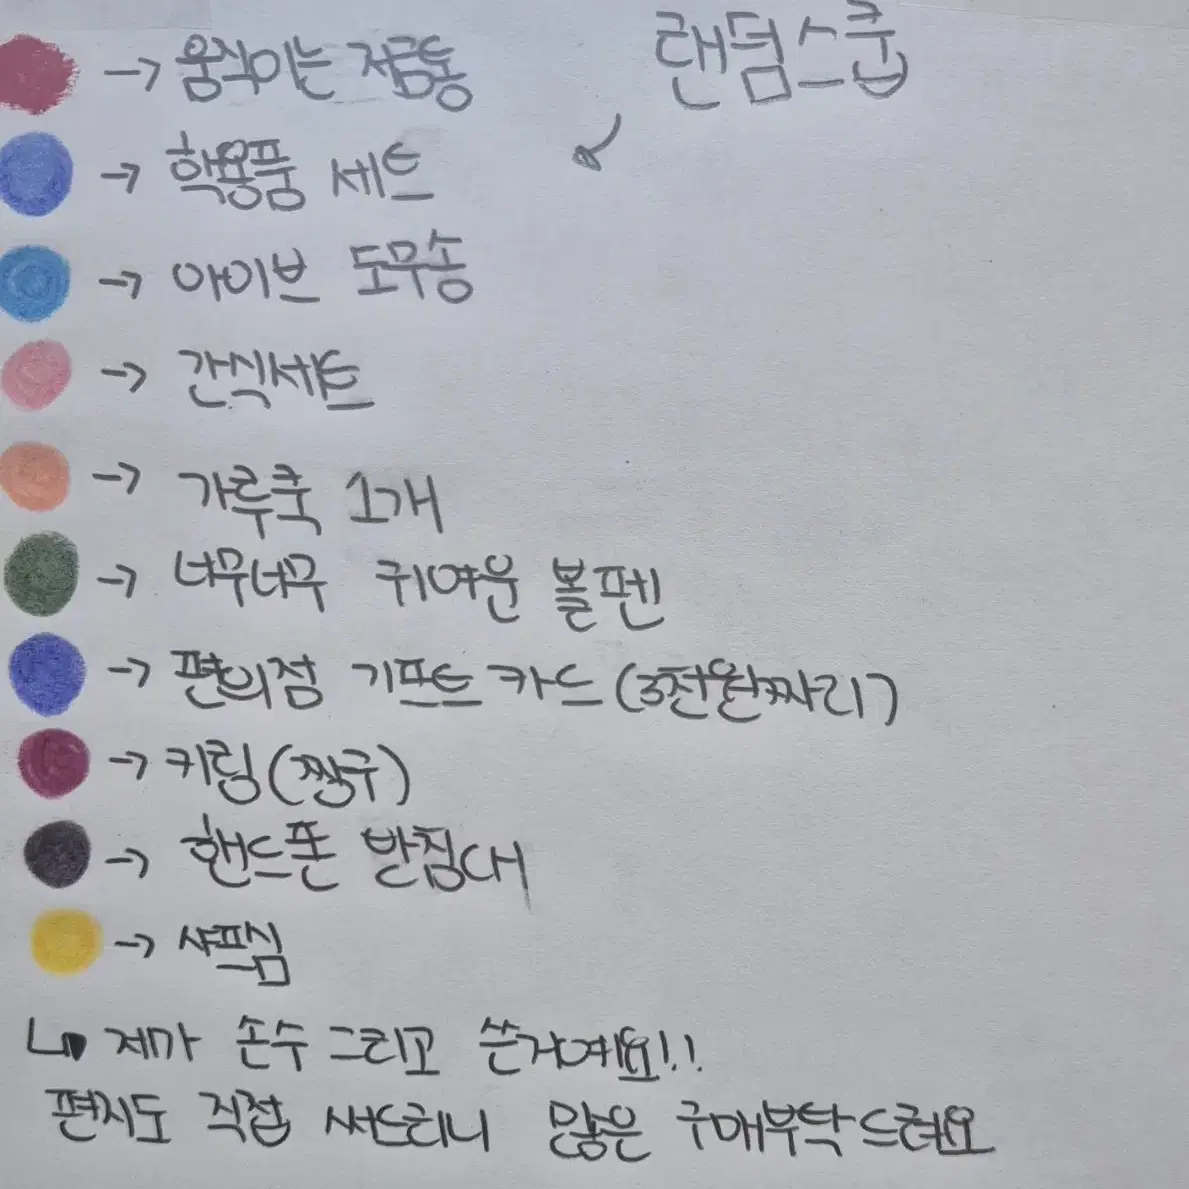 랜덤스쿱
→ 움직이는 저금통
→ 학용품 세트
→ 아이브 도무송
→ 간식세트
→ 가루쿡 1개
→ 너무너무 귀여운 볼펜
→ 편의점 기프트 카드 (3천원짜리)
→ 키링 (짱구)
→ 핸드폰 받침대
→ 샤프심
↳ 제가 손수 그리고 쓴거예요!!
편지도 직접 써드리니 많은 구매부탁드려요